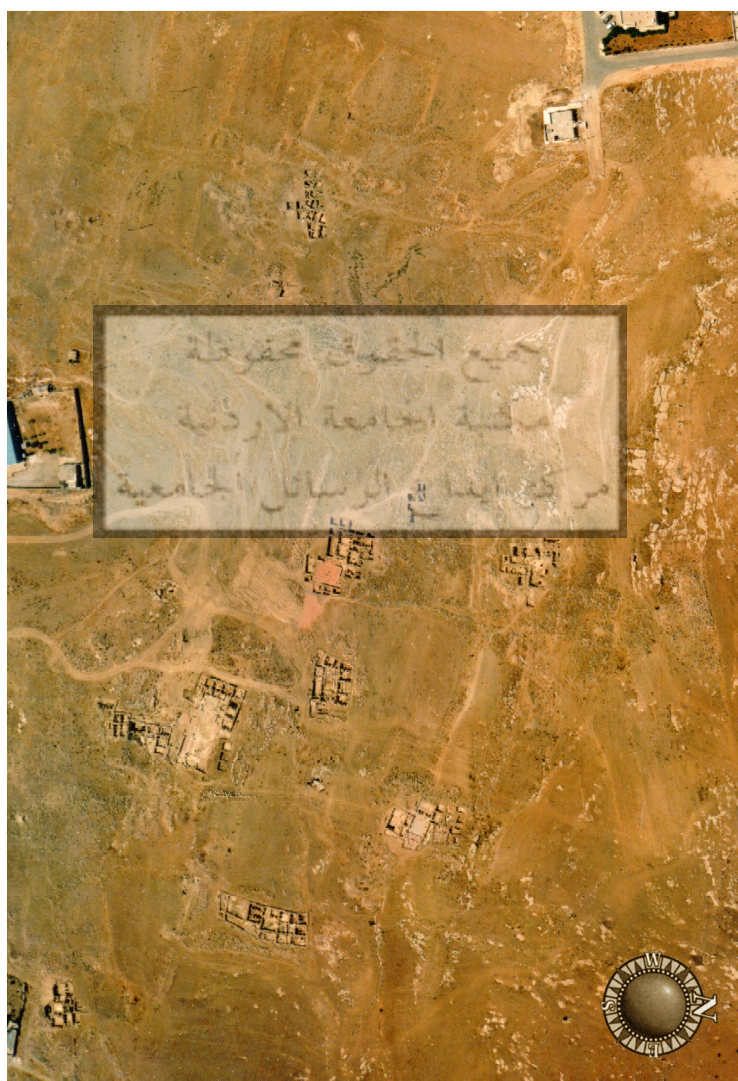 جميع الحقوق محفوظة
مكتبة الجامعة الاردنية
مركز ايداع الرسائل الجامعية
W
N
S
E